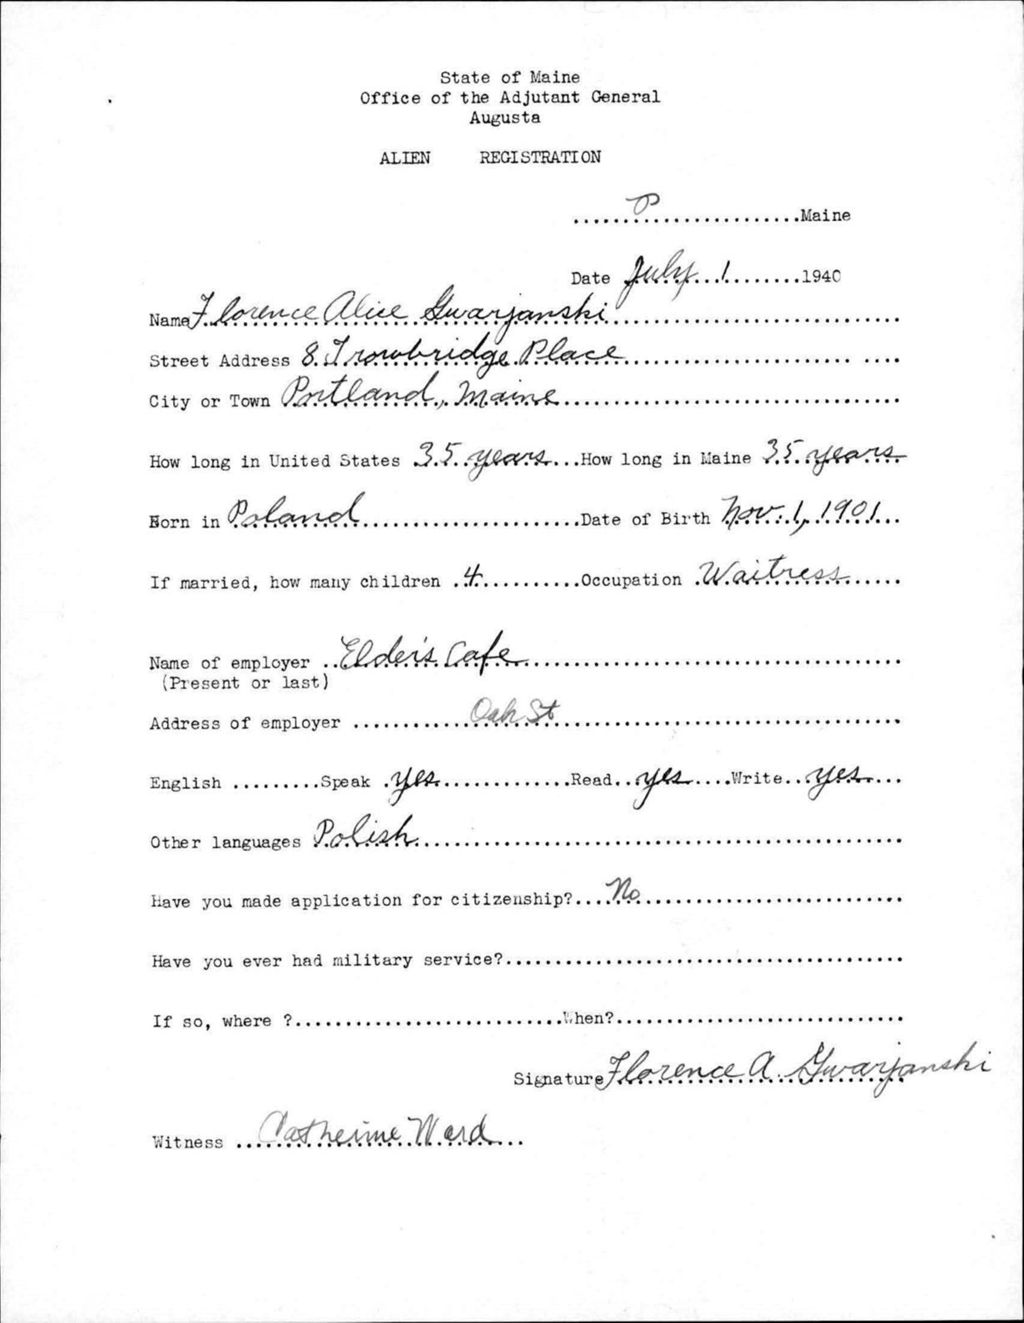 State of Maine
Office of the Adjutant General
Augusta
ALIEN REGISTRATION
P Maine
Date July 1 1940
Name Florence Alice Gwarjanski
Street Address 8 Trowbridge Place
City or Town Portland, Maine
How long in United States 35 years How long in Maine 35 years
Born in Poland Date of Birth Nov. 1, 1901
If married, how many children 4 Occupation Waitress
Name of employer Elder's Cafe
(Present or last)
Address of employer Oak St
English Speak yes Read yes Write yes
Other languages Polish
Have you made application for citizenship? No
Have you ever had military service?
If so, where ? When?
Signature Florence A. Gwarjanski
Witness Catherine Ward